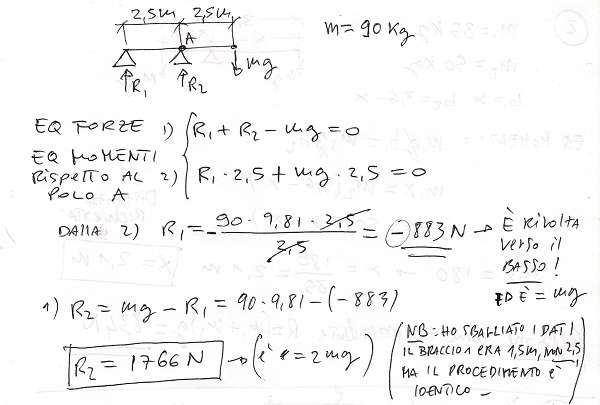 2,5m 2,5m
m = 90 Kg
A
R1 R2 mg
EQ FORZE 1) R1 + R2 - mg = 0
EQ MOMENTI
RISPETTO AL 2) R1 · 2,5 + mg · 2,5 = 0
POLO A
DALLA 2) R1 = - 90 · 9,81 · 2,5 / 2,5 = -883 N → È RIVOLTA
VERSO IL
BASSO!
ED È = mg
1) R2 = mg - R1 = 90 · 9,81 - (-883)
R2 = 1766 N → (è = 2mg)
(NB: HO SBAGLIATO I DATI!
IL BRACCIO ERA 1,5m, NON 2,5
MA IL PROCEDIMENTO È
IDENTICO -)